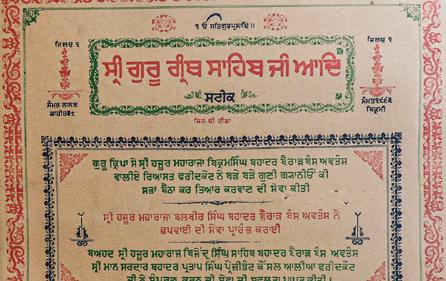 ੧ ਓ ਸਤਿਗੁਰਪ੍ਰਸਾਦਿ॥
ਜਿਲਦ ੧
ਜਿਲਦ ੧
ਸ੍ਰੀ ਗੁਰੂ ਗ੍ਰੰਥ ਸਾਹਿਬ ਜੀ ਆਦਿ
ਸਟੀਕ
ਸੰਮਤ ਨਾਨਕ
ਸ਼ਾਹੀ੪੩੯
ਸੰਮਤ੧੯੬੨
ਬਿਕ੍ਰਮੀ
ਜਿਸ ਦੀ ਟੀਕਾ
ਗੁਰੂ ਕ੍ਰਿਪਾ ਸੇ ਸ੍ਰੀ ਹਜ਼ੂਰ ਮਹਾਰਾਜਾ ਬਿਕ੍ਰਮਸਿੰਘ ਬਹਾਦਰ ਬੈਰਾੜਬੰਸ ਅਵਤੰਸ
ਵਾਲੀਏ ਰਿਆਸਤ ਫਰੀਦਕੋਟ ਨੇ ਬੜੇ ਬੜੇ ਗੁਣੀ ਗਯਾਨੀਓਂ ਕੀ
ਸਭਾ ਬੈਠਾ ਕਰ ਤਿਆਰ ਕਰਵਾਣ ਦੀ ਸੇਵਾ ਕੀਤੀ
ਸ੍ਰੀ ਹਜ਼ੂਰ ਮਹਾਰਾਜਾ ਬਲਬੀਰ ਸਿੰਘ ਬਹਾਦਰ ਬੈਰਾੜ ਬੰਸ ਅਵਤੰਸ ਨੇ
ਛਪਵਾਈ ਦੀ ਸੇਵਾ ਪ੍ਰਾਰੰਭ ਕਰਾਈ
ਬਅਹਦ ਸ੍ਰੀ ਹਜ਼ੂਰ ਮਹਾਰਾਜਾ ਬ੍ਰਿਜੇਂਦ੍ਰ ਸਿੰਘ ਸਾਹਿਬ ਬਹਾਦਰ ਬੈਰਾੜ ਬੰਸ ਅਵਤੰਸ
ਸ੍ਰੀ ਮਾਨ ਸਰਦਾਰ ਬਹਾਦਰ ਪ੍ਰਤਾਪ ਸਿੰਘ ਪ੍ਰੈਜ਼ੀਡੰਟ ਕੌਂਸਲ ਆਲੀਆ ਫਰੀਦਕੋਟ
ਜੀ ਨੇ ਸੰਪੂਰਣ ਕਰਨ ਦੀ ਸੇਵਾ ਕੀ